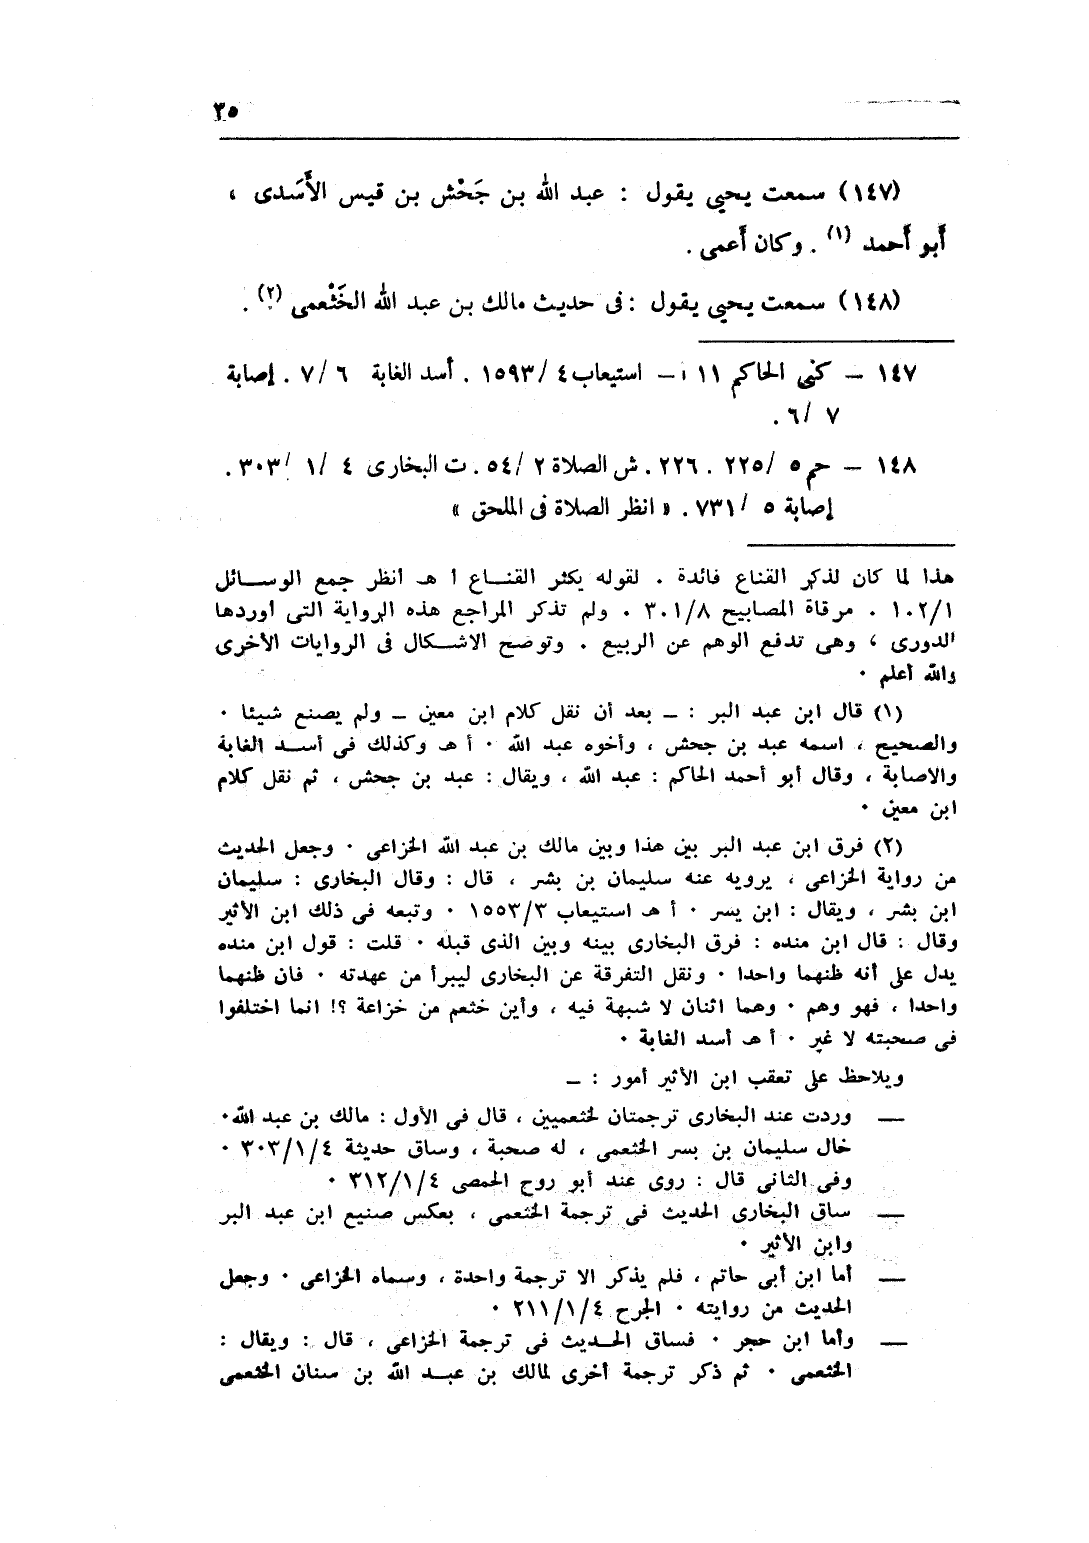 ٣٥
(١٤٧) سمعت يحيي يقول : عبد الله بن جَحْش بن قيس الأَسَدى ،
أبو أَحمد (١) . وكان أَعمى .
(١٤٨) سمعت يحيي يقول : فى حديث مالك بن عبد الله الخَثْعمى (٢) .
١٤٧ – كنى الحاكم ١١ أ – استيعاب ٤ /١٥٩٣ . أسد الغابة ٦ /٧ . إصابة
٧ /٦ .
١٤٨ – حم ٥ /٢٢٥ . ٢٢٦ . ش الصلاة ٢ /٥٤ . ت البخارى ٤ /١ /٣٠٣ .
إصابة ٥ /٧٣١ . « انظر الصلاة فى الملحق »
هذا لما كان لذكر القناع فائدة . لقوله يكثر القناع أ هـ أنظر جمع الوسائل
١٠٢/١ . مرقاة المصابيح ٣٠١/٨ . ولم تذكر المراجع هذه الرواية التى أوردها
الدورى ، وهى تدفع الوهم عن الربيع . وتوضح الاشكال فى الروايات الأخرى
والله أعلم .
(١) قال ابن عبد البر : – بعد أن نقل كلام ابن معين – ولم يصنع شيئا .
والصحيح ، اسمه عبد بن جحش ، وأخوه عبد الله . أ هـ وكذلك فى أسد الغابة
والاصابة ، وقال أبو أحمد الحاكم : عبد الله ، ويقال : عبد بن جحش ، ثم نقل كلام
ابن معين .
(٢) فرق ابن عبد البر بين هذا وبين مالك بن عبد الله الخزاعى . وجعل الحديث
من رواية الخزاعى ، يرويه عنه سليمان بن بشر ، قال : وقال البخارى : سليمان
ابن بشر ، ويقال : ابن يسر . أ هـ استيعاب ١٥٥٣/٣ . وتبعه فى ذلك ابن الأثير
وقال : قال ابن منده : فرق البخارى بينه وبين الذى قبله . قلت : قول ابن منده
يدل على أنه ظنهما واحدا . ونقل التفرقة عن البخارى ليبرأ من عهدته . فان ظنهما
واحدا ، فهو وهم . وهما اثنان لا شبهة فيه ، وأين خثعم من خزاعة ؟! انما اختلفوا
فى صحبته لا غير . أ هـ أسد الغابة .
ويلاحظ على تعقب ابن الأثير أمور : –
— وردت عند البخارى ترجمتان لخثعميين ، قال فى الأول : مالك بن عبد الله .
خال سليمان بن بسر الخثعمى ، له صحبة ، وساق حديثة ٣٠٣/١/٤ .
وفى الثانى قال : روى عند أبو روح الحمصى ٣١٢/١/٤ .
— ساق البخارى الحديث فى ترجمة الخثعمى ، بعكس صنيع ابن عبد البر
وابن الأثير .
— أما ابن أبى حاتم ، فلم يذكر الا ترجمة واحدة ، وسماه الخزاعى . وجعل
الحديث من روايته . الجرح ٢١١/١/٤ .
— وأما ابن حجر . فساق الحديث فى ترجمة الخزاعى ، قال : ويقال :
الخثعمى . ثم ذكر ترجمة أخرى لمالك بن عبد الله بن سنان الخثعمى